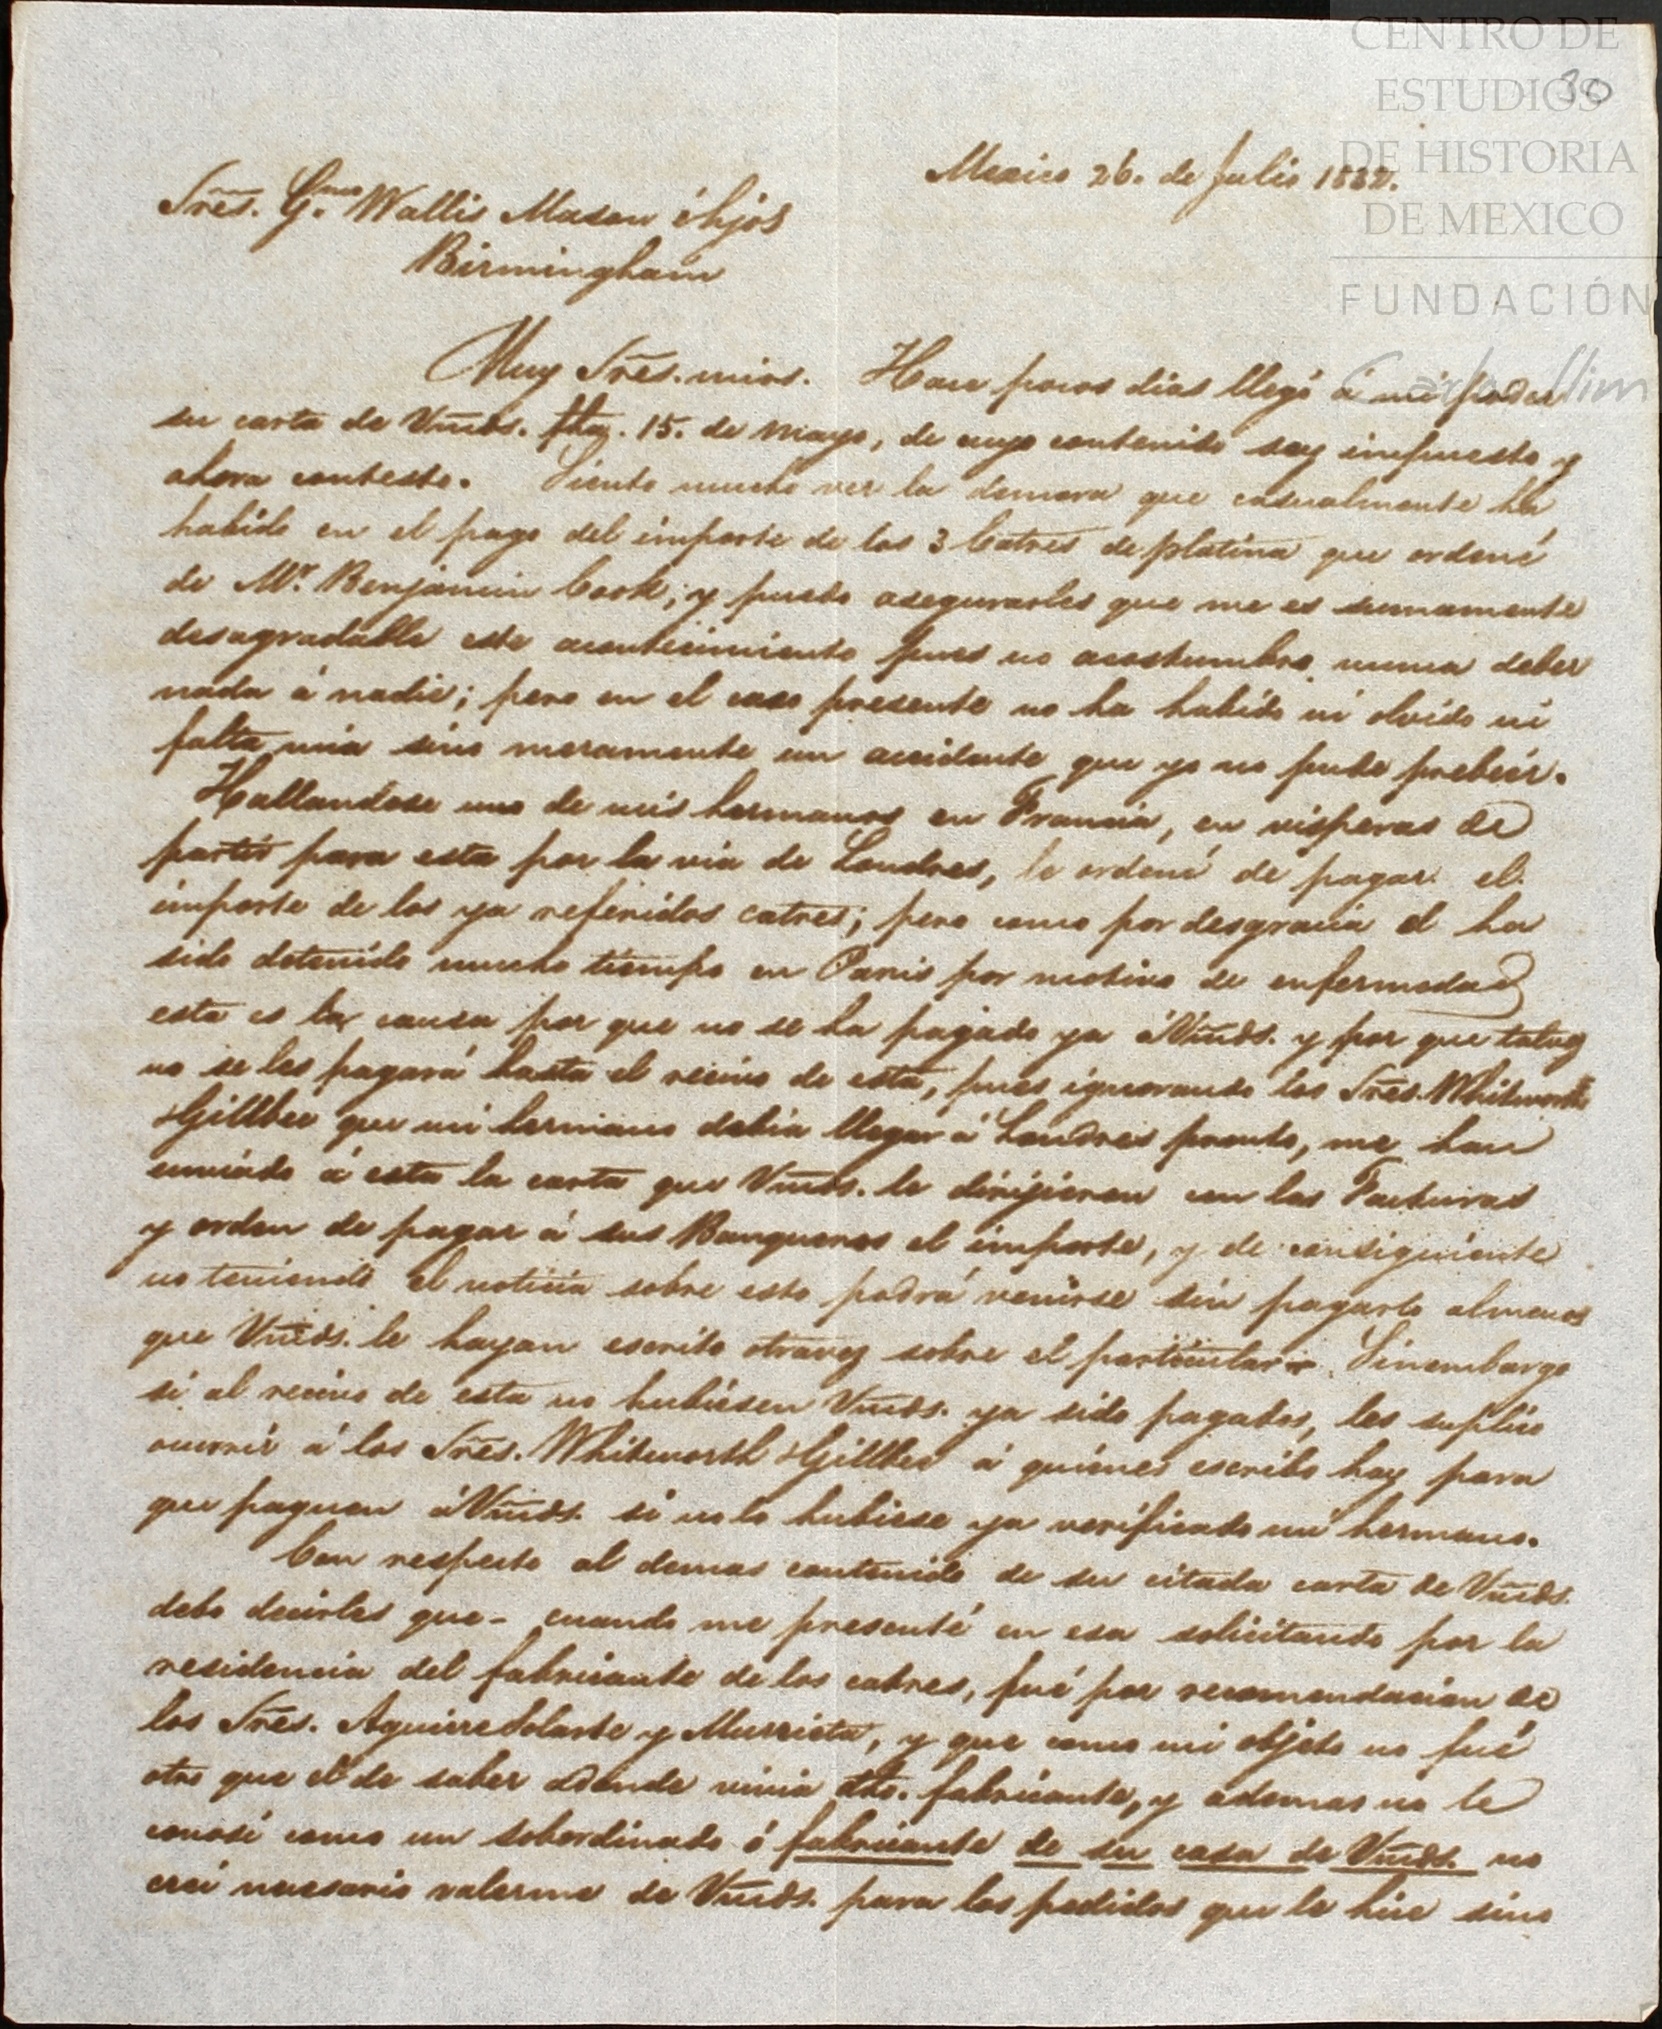 CENTRO DE
ESTUDIOS
DE HISTORIA
DE MEXICO
FUNDACIÓN
Carlos Slim
30
Mexico 26. de Julio
Sres. Wallis Mason é hijos
Birmingham
Muy Sres. mios. Hace pocos dias llegó á mi poder
su carta de Vmds. fha. 15. de Mayo, de cuyo contenido soy impuesto y
ahora contesto. Siento mucho ver la demora que casualmente ha
habido en el pago del importe de los 3 Catres de platina que ordené
de Mr. Benjamin Cook; y puedo asegurarles que me es sumamente
desagradable este acontecimiento pues no acostumbro nunca deber
nada á nadie; pero en el caso presente no ha habido ni olvido ni
falta mia sino meramente un accidente que yo no pude prebeér.
Hallandose uno de mis hermanos en Francia, en visperas de
partir para esta por la via de Londres, le ordené de pagar el
importe de los ya referidos catres; pero como por desgracia el ha
sido detenido mucho tiempo en Paris por motivo de enfermedad
esta es la causa por que no se ha pagado ya á Vmds. y por que talvez
no se les pagará hasta el recivo de esta, pues ignorando los Sres. Whitworth
& Gillbee que mi hermano debia llegar á Londres pronto, me han
enviado á esta la carta que Vmds. le dirijieron con las Facturas
y orden de pagar á sus Banqueros el importe, y de consiguiente
no teniendo el noticia sobre esto podrá venirse sin pagarlo almenos
que Vmds. le hayan escrito otravez sobre el particular. Sinembargo
si al recivo de esta no hubiesen Vmds. ya sido pagados, les suplico
ocurrir á los Sres. Whitworth & Gillbee á quienes escribo hoy para
que paguen á Vmds. si no lo hubiese ya verificado mi hermano.
Con respecto al demas contenido de su citada carta de Vmds.
debo decirles que - cuando me presenté en esa solicitando por la
residencia del fabricante de los catres, fué por recomendacion de
los Sres. Aguirre Solarte y Murrieta, y que como mi objeto no fué
otro que el de saber adonde vivia dho. fabricante, y ademas no le
conosí como un sobordinado ó fabricante de su casa de Vmds. no
creí necesario valerme de Vmds. para los pedidos que le hice sino